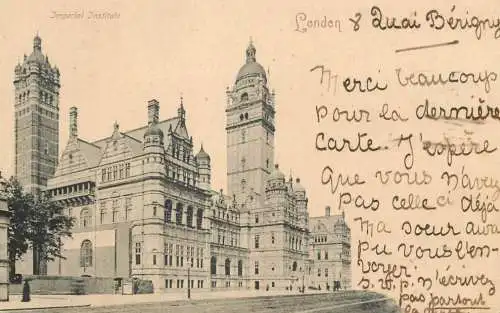 Imperial Institute
London 8 Quai Bérigny
Merci beaucoup
pour la dernière
carte. J'espère
que vous n'avez
pas celle ci déjà
ma soeur avait
pu vous l'en-
voyer.
S.V.P. n'écrivez
pas partout